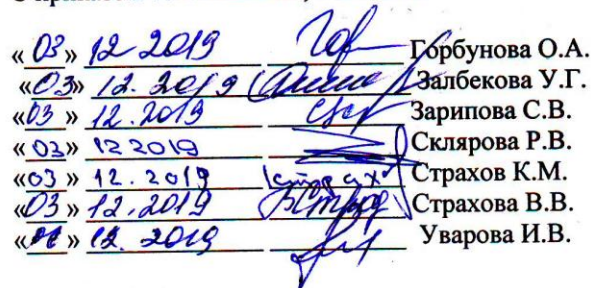 « 03 » 12 2019 Гор Горбунова О.А.
«03» 12. 2019 Залбекова У.Г.
«03 » 12.2019 Зарипова С.В.
« 03 » 12 2019 Склярова Р.В.
«03 » 12.2019 Страх Страхов К.М.
«03 » 12.2019 ВСтрах Страхова В.В.
« » 12. 2019 Уварова И.В.